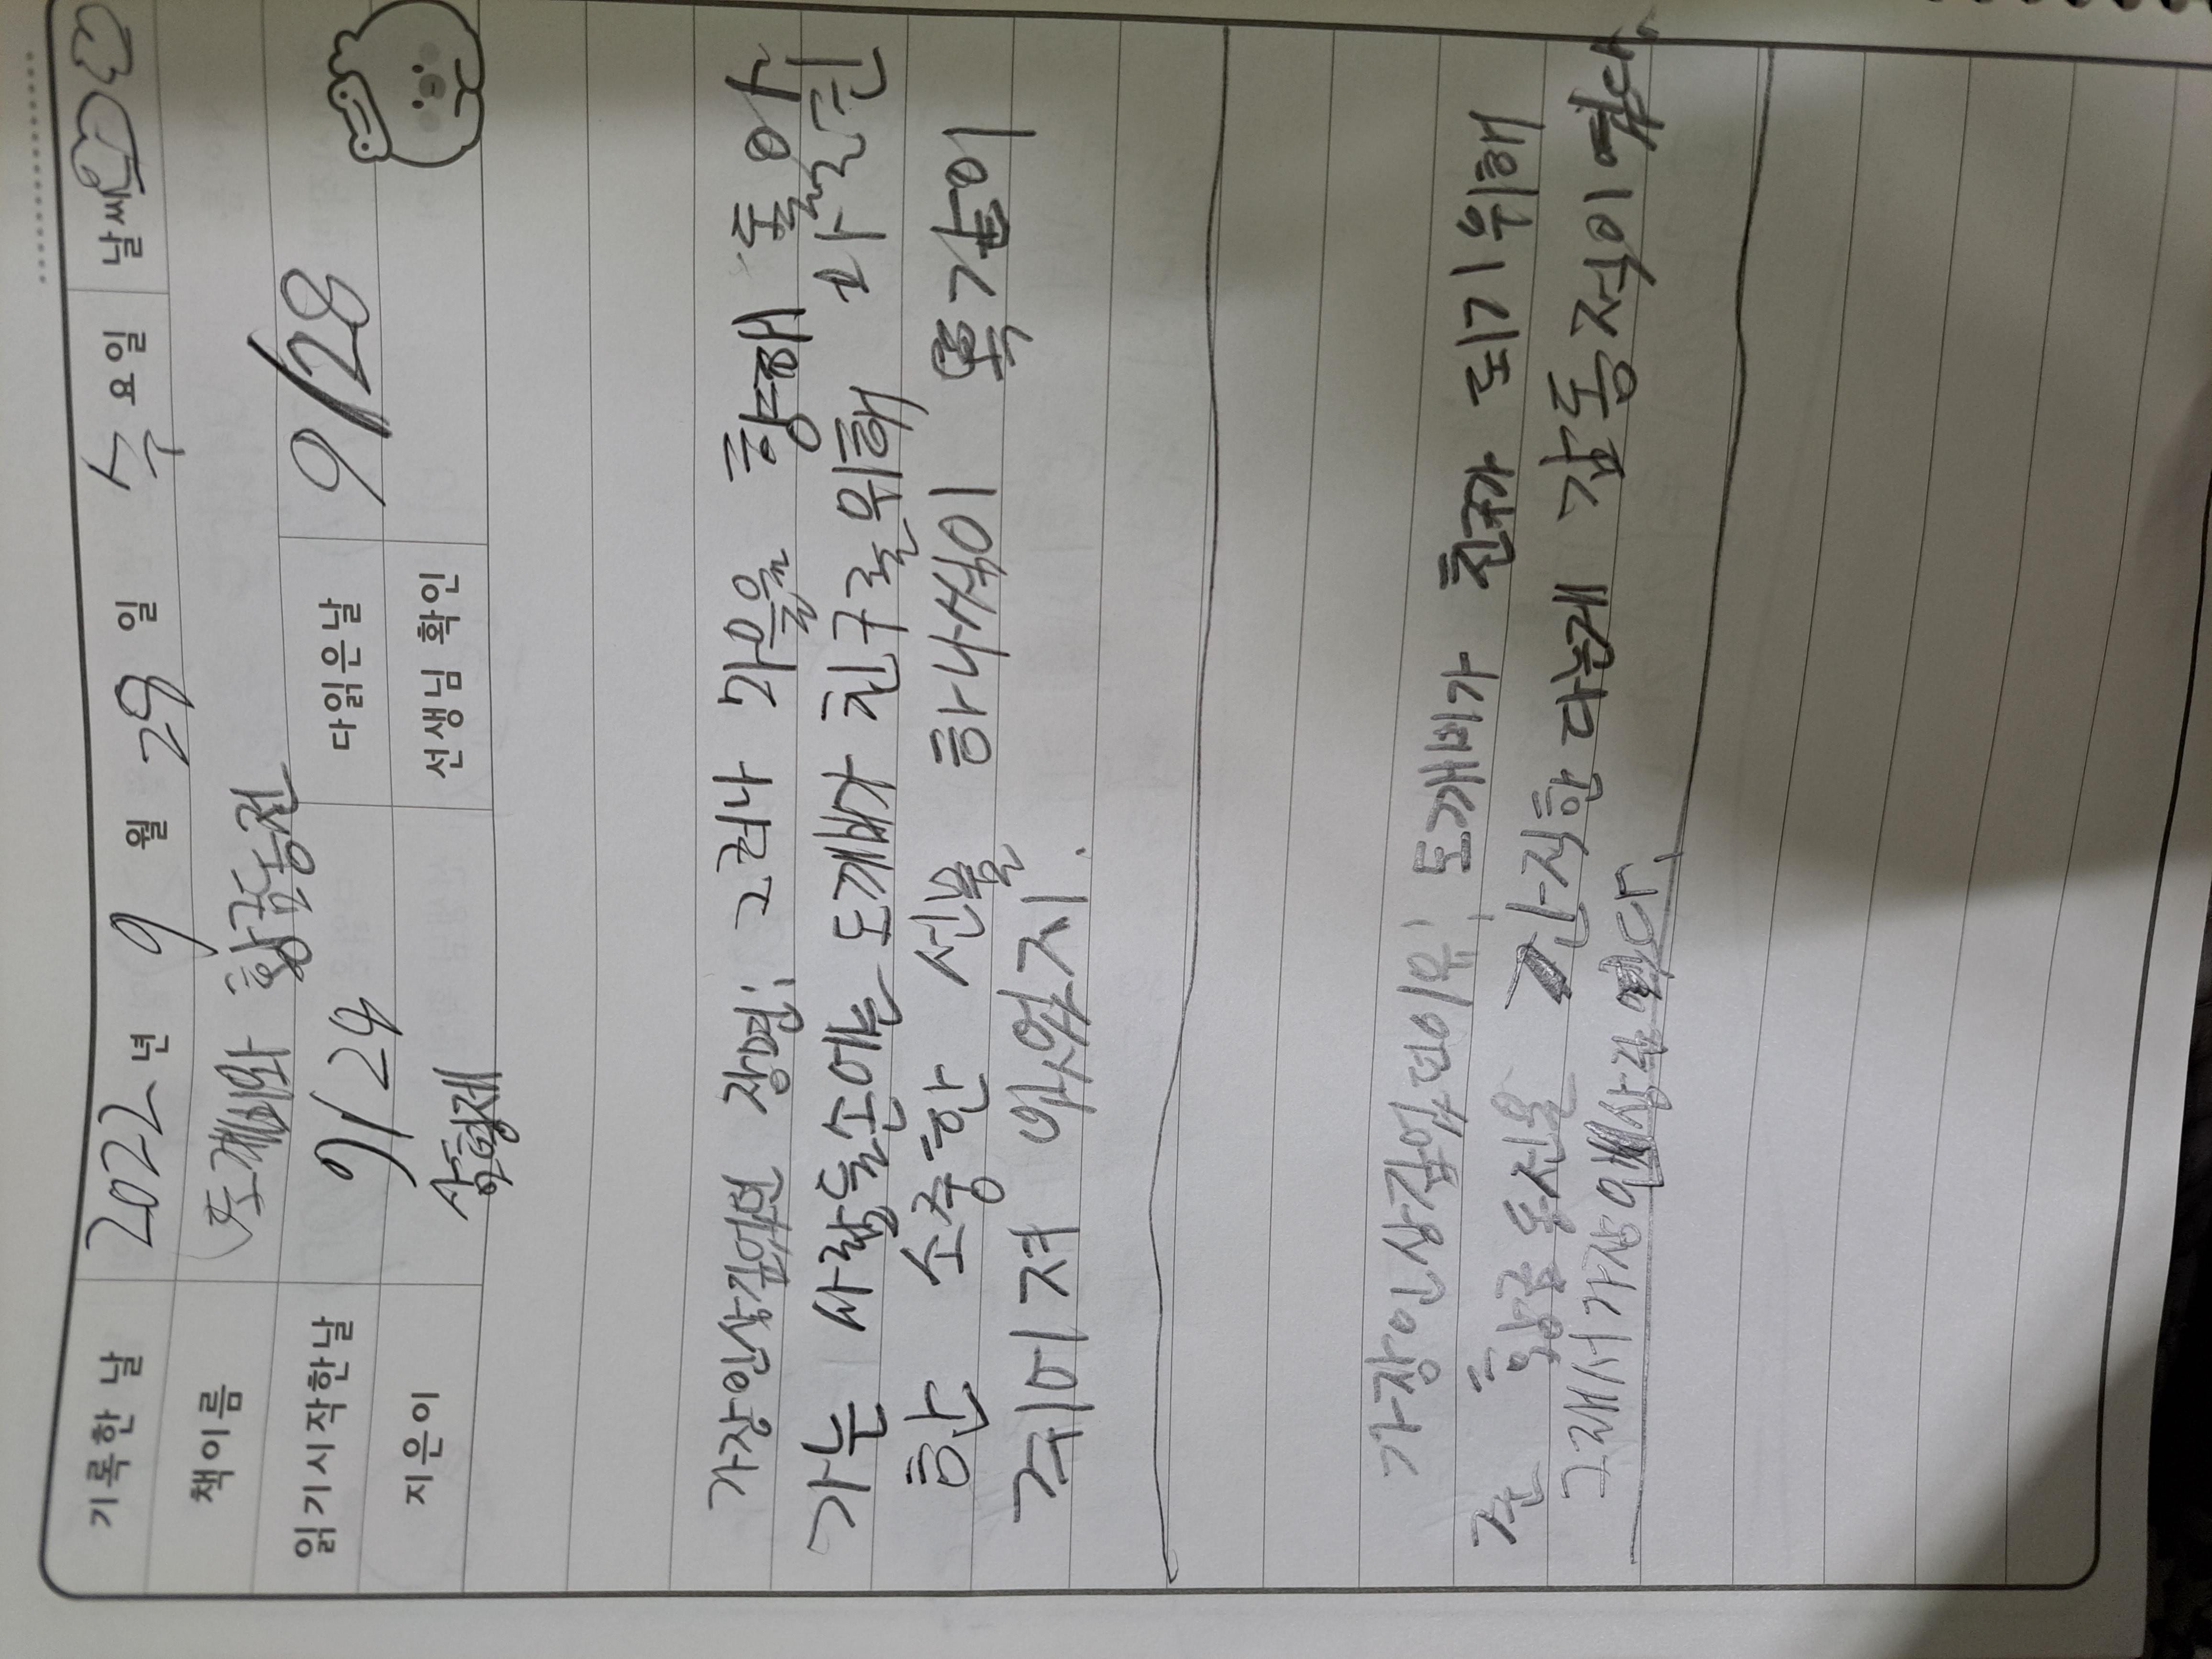 기록한 날 2022년 9월 28일 수요일 날씨
책이름 도깨비와 황금동전
읽기시작한날 9/28 다읽은날 9/28
지은이 삼형제 선생님 확인
가장인상깊었던 장면: 그러나 마을을 향해 돌아
가는 사람들손에는 도깨비가 친구를위해 마련
한 소중한 선물 하나씩이 똑같이
쥐어져 있었지.
가장인상깊었던이유: 도깨비가 친구가 되기위해
준 황금동전을 간직한다는게 감동적이였다.
그래서가장 인상깊였다.